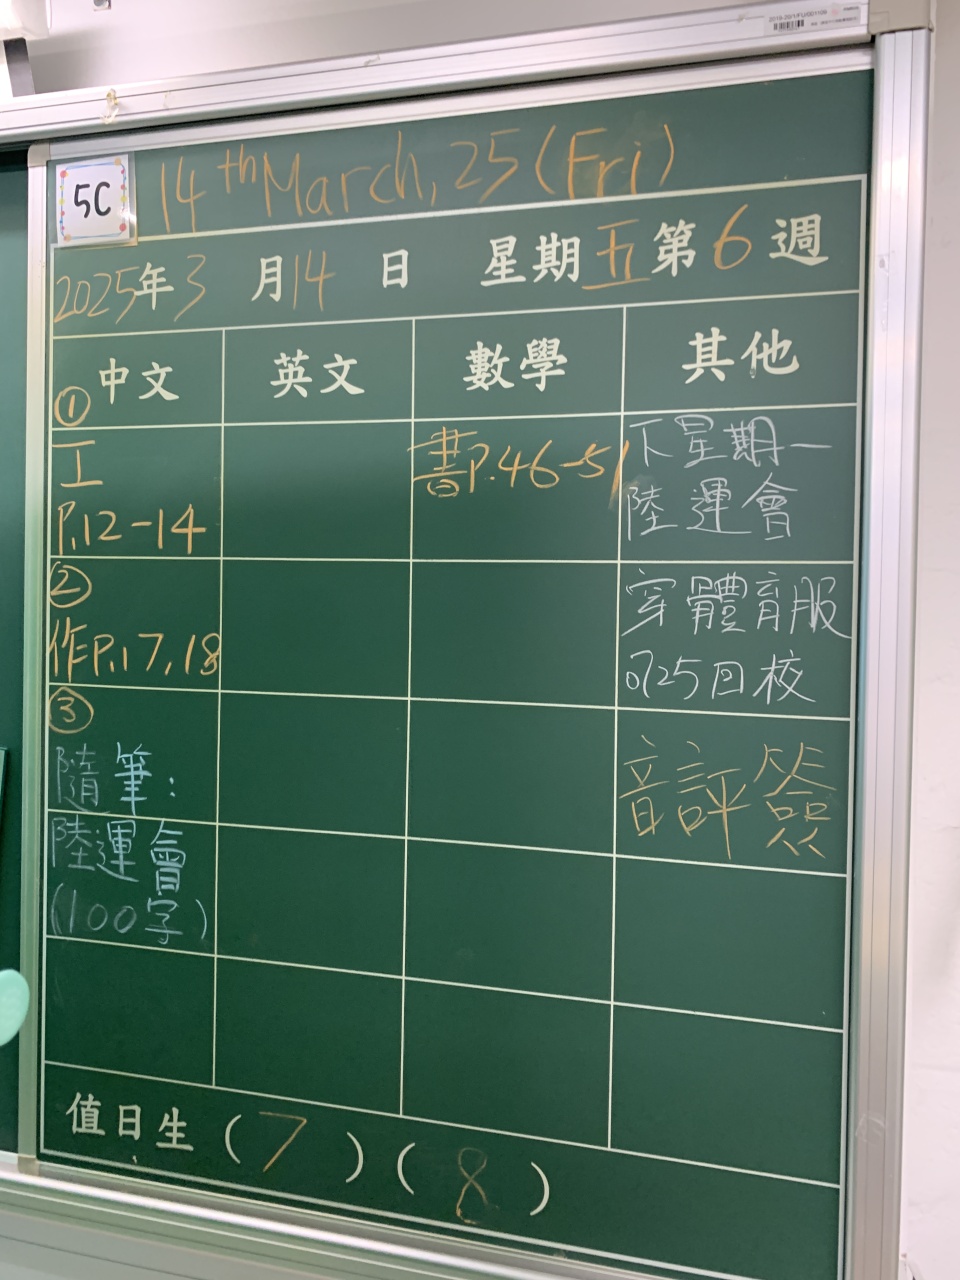 5C
14th March, 25 (Fri)
2025年3月14日 星期五第6週
中文 英文 數學 其他
①
工
P.12-14
②
作P.17,18
③
隨筆：
陸運會
(100字)
書P.46-51
下星期一
陸運會
穿體育服
0725回校
音評簽
值日生（7）（8）